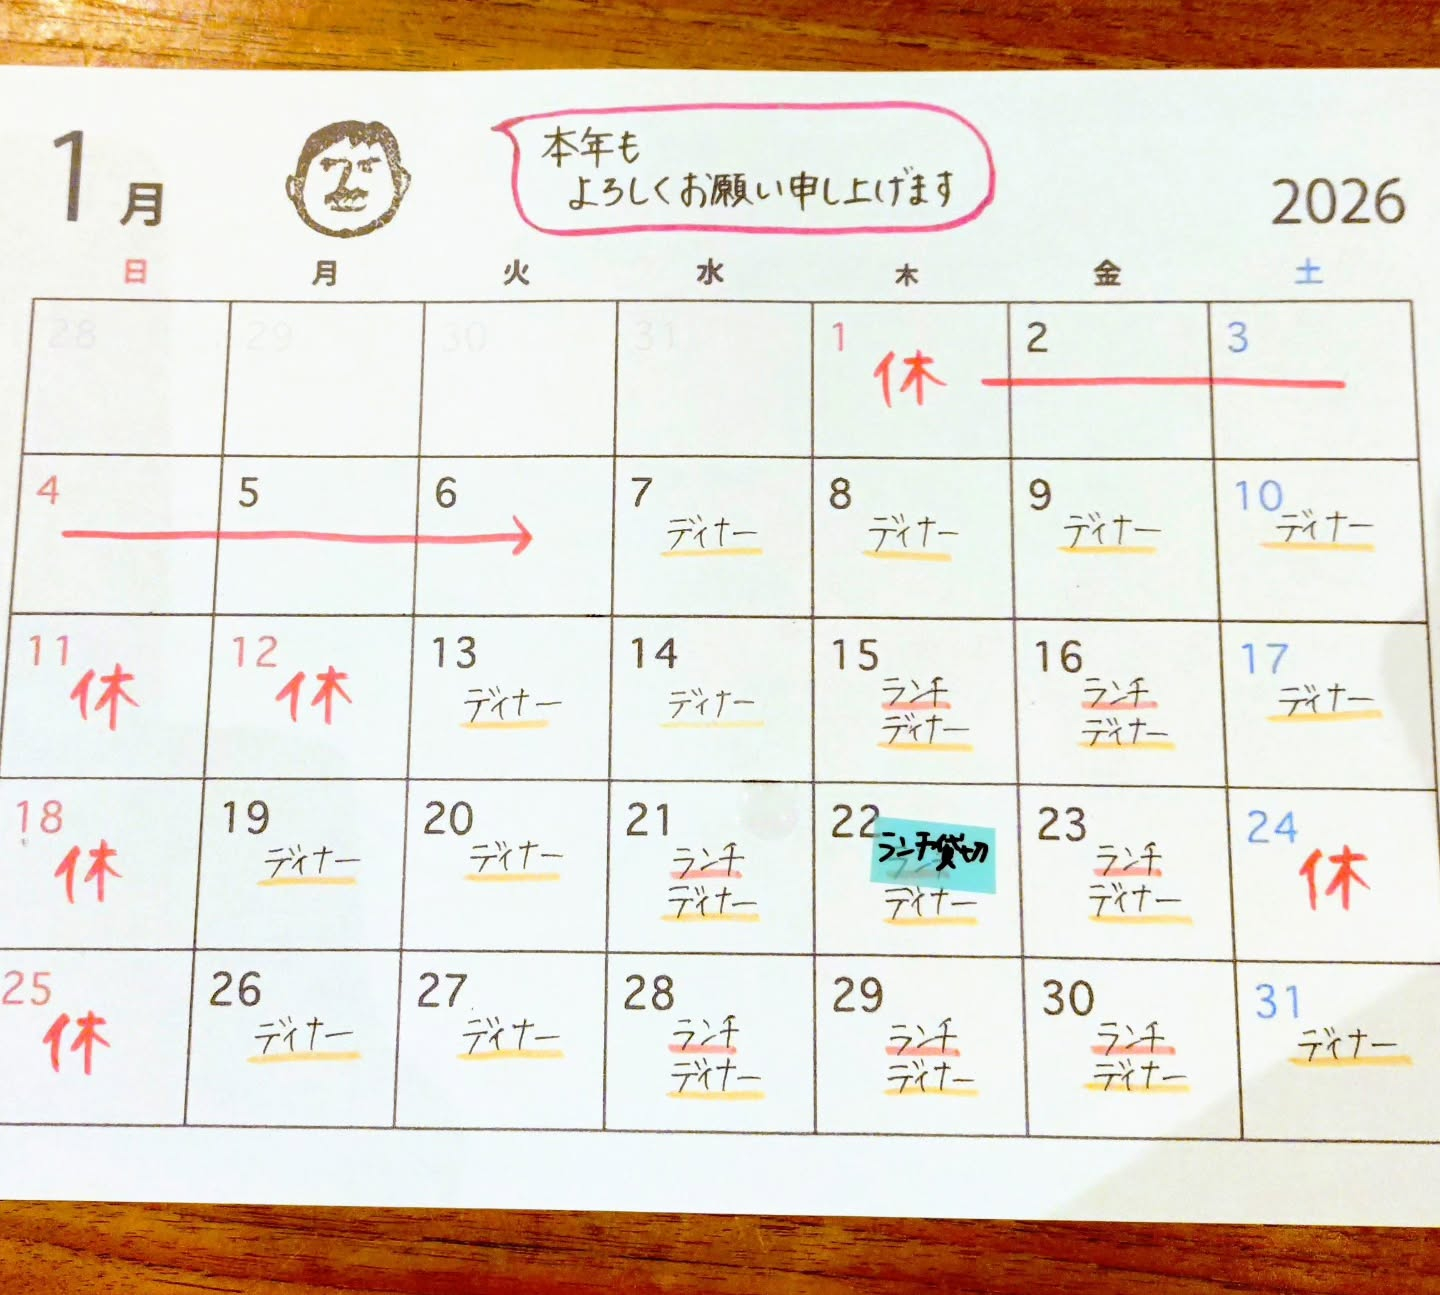 1月
本年も
よろしくお願い申し上げます
2026
日 月 火 水 木 金 土
28 29 30 31 1 2 3
休
4 5 6 7 8 9 10
ディナー ディナー ディナー ディナー
11 12 13 14 15 16 17
休 休 ディナー ディナー ランチ ランチ ディナー
ディナー ディナー
18 19 20 21 22 23 24
休 ディナー ディナー ランチ ランチ貸切 ランチ 休
ディナー ディナー ディナー
25 26 27 28 29 30 31
休 ディナー ディナー ランチ ランチ ランチ ディナー
ディナー ディナー ディナー